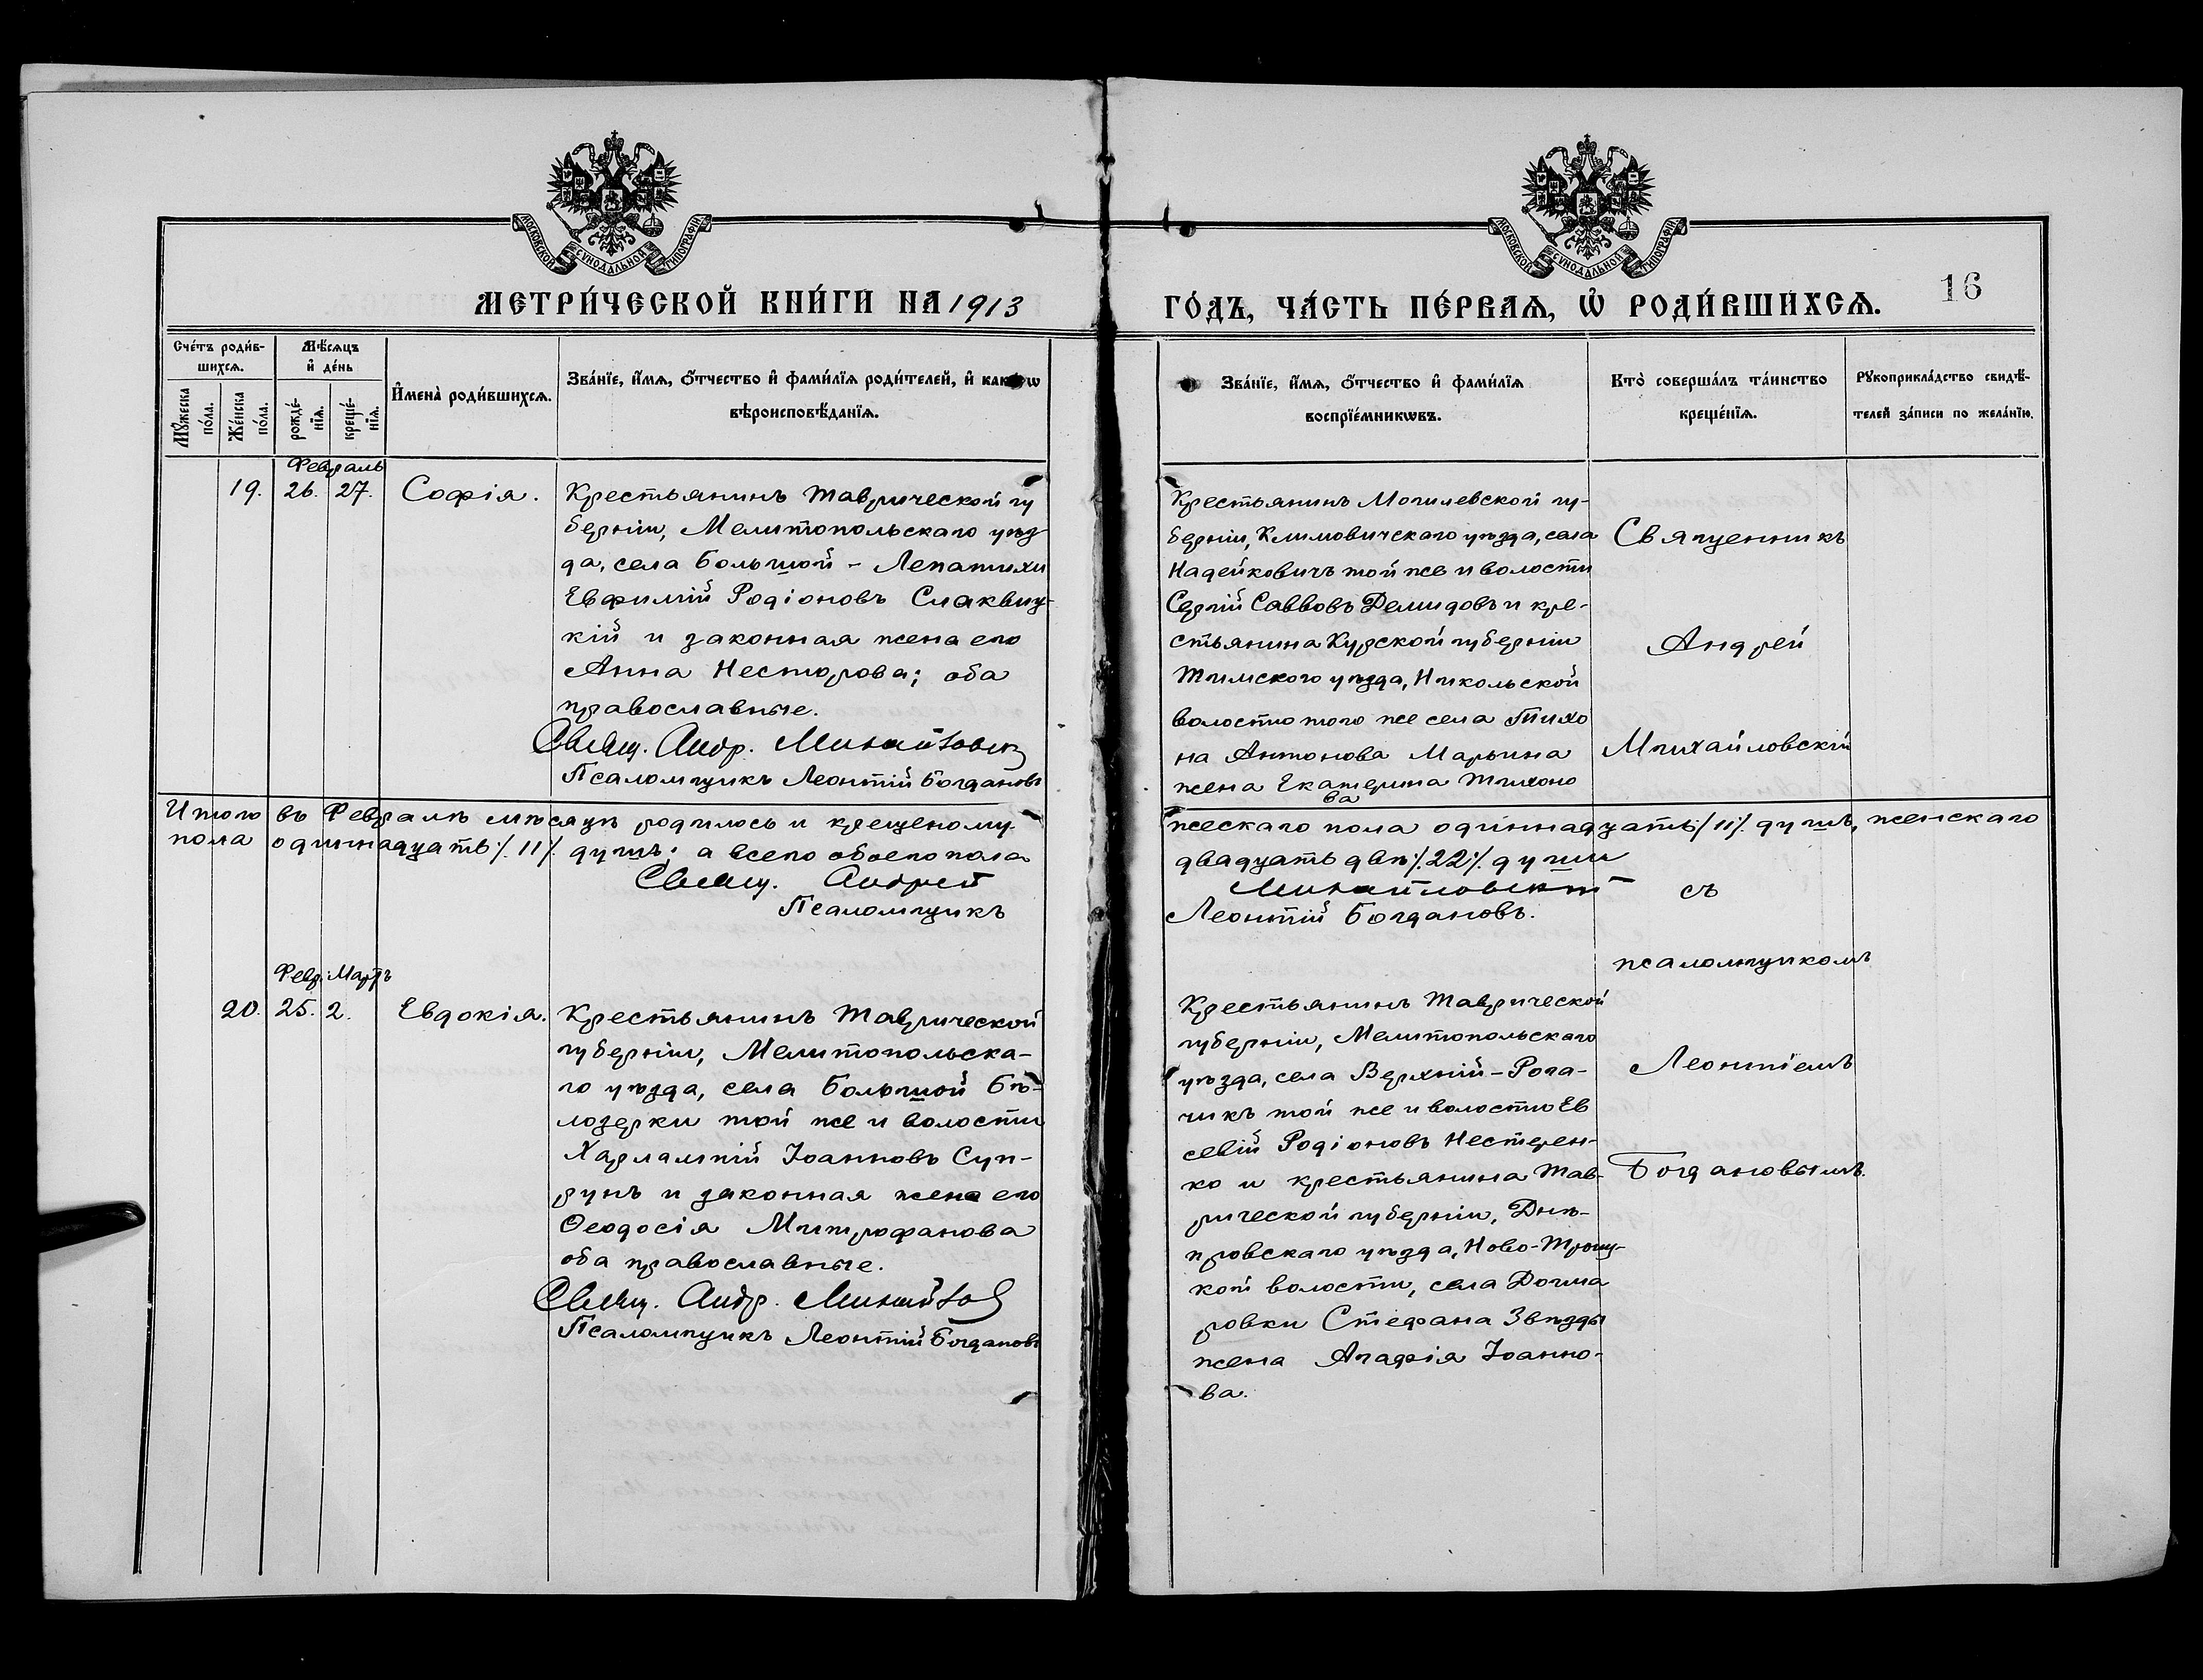 МОСКОВСКОЙ СѴНОДАЛЬНОЙ ТИПОГРАФІИ
МОСКОВСКОЙ СѴНОДАЛЬНОЙ ТИПОГРАФІИ
16
МЕТРИ́ЧЕСКОЙ КНИ́ГИ НА 1913
ГО́ДЪ, ЧА́СТЬ ПЕ́РВАѦ, Ѡ҆ РОДИ́ВШИХСѦ.
Сче́тъ роди́в-
шихсѧ.
Мꙋ́жеска по́ла.
Же́нска по́ла.
Мѣ́сѧцъ
и҆ де́нь
рожде́-
нїѧ.
креще́-
нїѧ.
И҆мена̀ роди́вшихсѧ.
Зва́нїе, и҆́мѧ, ѻ҆́тчество и҆ фами́лїѧ роди́телей, и҆ како́гѡ
вѣроисповѣ́данїѧ.
Зва́нїе, и҆́мѧ, ѻ҆́тчество и҆ фами́лїѧ
воспрїе́мникѡвъ.
Кто̀ соверша́лъ та́инство
креще́нїѧ.
Рꙋкоприкла́дство свидѣ́-
телей за́писи по жела́нїю.
Февраль
19. 26. 27. Софія.
Крестьянинъ Таврической гу
берніи, Мелитопольскаго уѣз
да, села Большой - Лепатихи
Евфимій Родіоновъ Слаквиц-
кій и законная жена его
Анна Несторова; оба
православные.
Свящ. Андр. Михайловск
Псаломщикъ Леонтій Богдановъ
Крестьянинъ Могилевской гу-
берніи, Климовичскаго уѣзда, села
Надейковичъ той же и волости
Сергій Савовъ Демидовъ и кре-
стьянина Курской губерніи
Тимского уѣзда, Никольской
волости того же села Тихо
на Антонова Марьина
жена Екатерина Тихоно
ва
Священникъ
Андрей
Михайловскій
съ
псаломщикомъ
Леонтіемъ
Богдановымъ.
Итого въ Февралѣ мѣсяцѣ родилось и крещено му-
жескаго пола одиннадцать /11/. душъ, женскаго
пола одиннадцать /. 11 /. душъ; а всего обоего пола
двадцать двѣ /. 22 /. души
Свящ. Андрей
Михайловскій
Псаломщикъ
Леонтій Богдановъ.
Февр. Мартъ
20. 25. 2. Евдокія.
Крестьянинъ Таврической
губерніи, Мелитопольска-
го уѣзда, села Большой Бѣ-
лозерки той же и волости
Харлампій Іоанновъ Суп-
рунъ и законная жена его
Ѳеодосія Митрофанова
оба православные.
Свящ. Андр. Михайлов
Псаломщикъ Леонтій Богдановъ
Крестьянинъ Таврической
губерніи, Мелитопольскаго
уѣзда, села Верхній - Рога-
чикъ той же и волости Ев
севій Родіоновъ Нестерен-
ко и крестьянина Тав-
рической губерніи, Днѣ-
провскаго уѣзда, Ново-Троиц-
кой волости, села Догма
ровки Стефана Звѣзды
жена Агафія Іоанно-
ва.